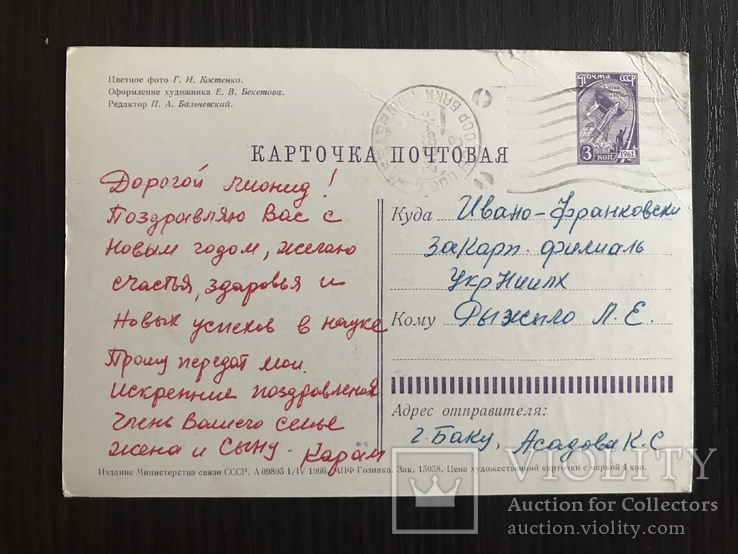 Цветное фото Г. И. Костенко.
Оформление художника Е. В. Бекетова.
Редактор П. А. Бальчевский.
ПОЧТА СССР
3 КОП
1961
КАРТОЧКА ПОЧТОВАЯ
Дорогой Лионид!
Поздравляю Вас с
Новым годом, желаю
счастья, здоровья и
Новых успехов в науке
Прошу передат мои
Искренние поздравления
Члень Вашего семье
жена и Сыну. Карам
Куда Ивано-Франковски
Закарп. филиаль
УкрНиилх
Кому Рыжило Л. Е.
Адрес отправителя:
г. Баку, Асадова К. С
Издание Министерства связи СССР. А 09895 1/IV 1966. МПФ Гознака. Зак. 15058. Цена художественной карточки с маркой 4 коп.
VIOLITY
Auction for Collectors
auction.violity.com